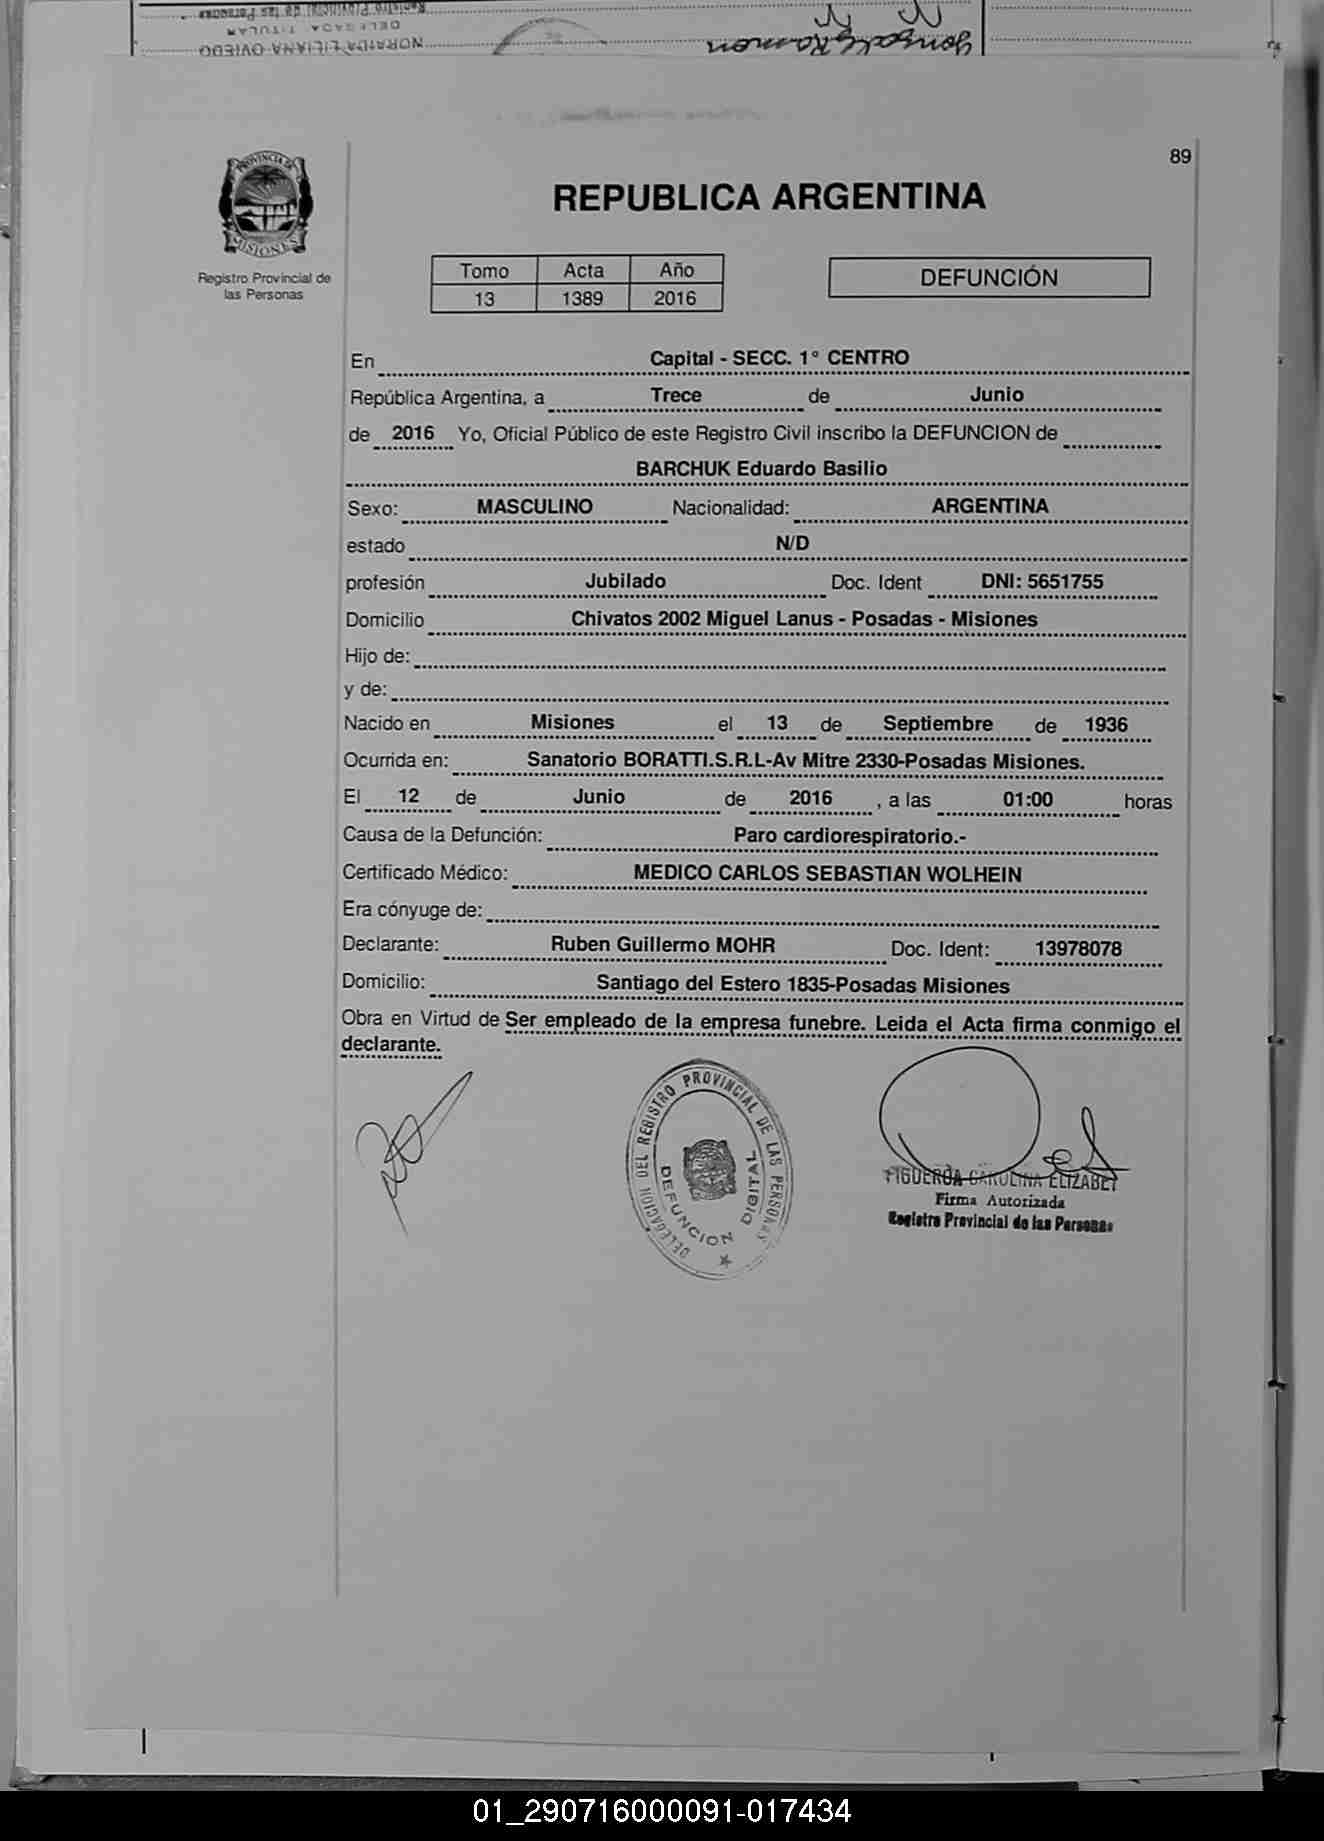 Registro Provincial de las Personas
DELEGADA TITULAR
NORAIDA LILIANA OVIEDO
Gonzalez Ramon
89
PROVINCIA DE
MISIONES
Registro Provincial de
las Personas
REPUBLICA ARGENTINA
Tomo Acta Año
13 1389 2016
DEFUNCIÓN
En Capital - SECC. 1° CENTRO
República Argentina, a Trece de Junio
de 2016 Yo, Oficial Público de este Registro Civil inscribo la DEFUNCION de
BARCHUK Eduardo Basilio
Sexo: MASCULINO Nacionalidad: ARGENTINA
estado N/D
profesión Jubilado Doc. Ident DNI: 5651755
Domicilio Chivatos 2002 Miguel Lanus - Posadas - Misiones
Hijo de:
y de:
Nacido en Misiones el 13 de Septiembre de 1936
Ocurrida en: Sanatorio BORATTI.S.R.L-Av Mitre 2330-Posadas Misiones.
El 12 de Junio de 2016 , a las 01:00 horas
Causa de la Defunción: Paro cardiorespiratorio.-
Certificado Médico: MEDICO CARLOS SEBASTIAN WOLHEIN
Era cónyuge de:
Declarante: Ruben Guillermo MOHR Doc. Ident: 13978078
Domicilio: Santiago del Estero 1835-Posadas Misiones
Obra en Virtud de Ser empleado de la empresa funebre. Leida el Acta firma conmigo el
declarante.
DELEGACION DEL REGISTRO PROVINCIAL DE LAS PERSONAS
DEFUNCION DIGITAL
FIGUEROA CAROLINA ELIZABET
Firma Autorizada
Registro Provincial de las Personas
01_290716000091-017434